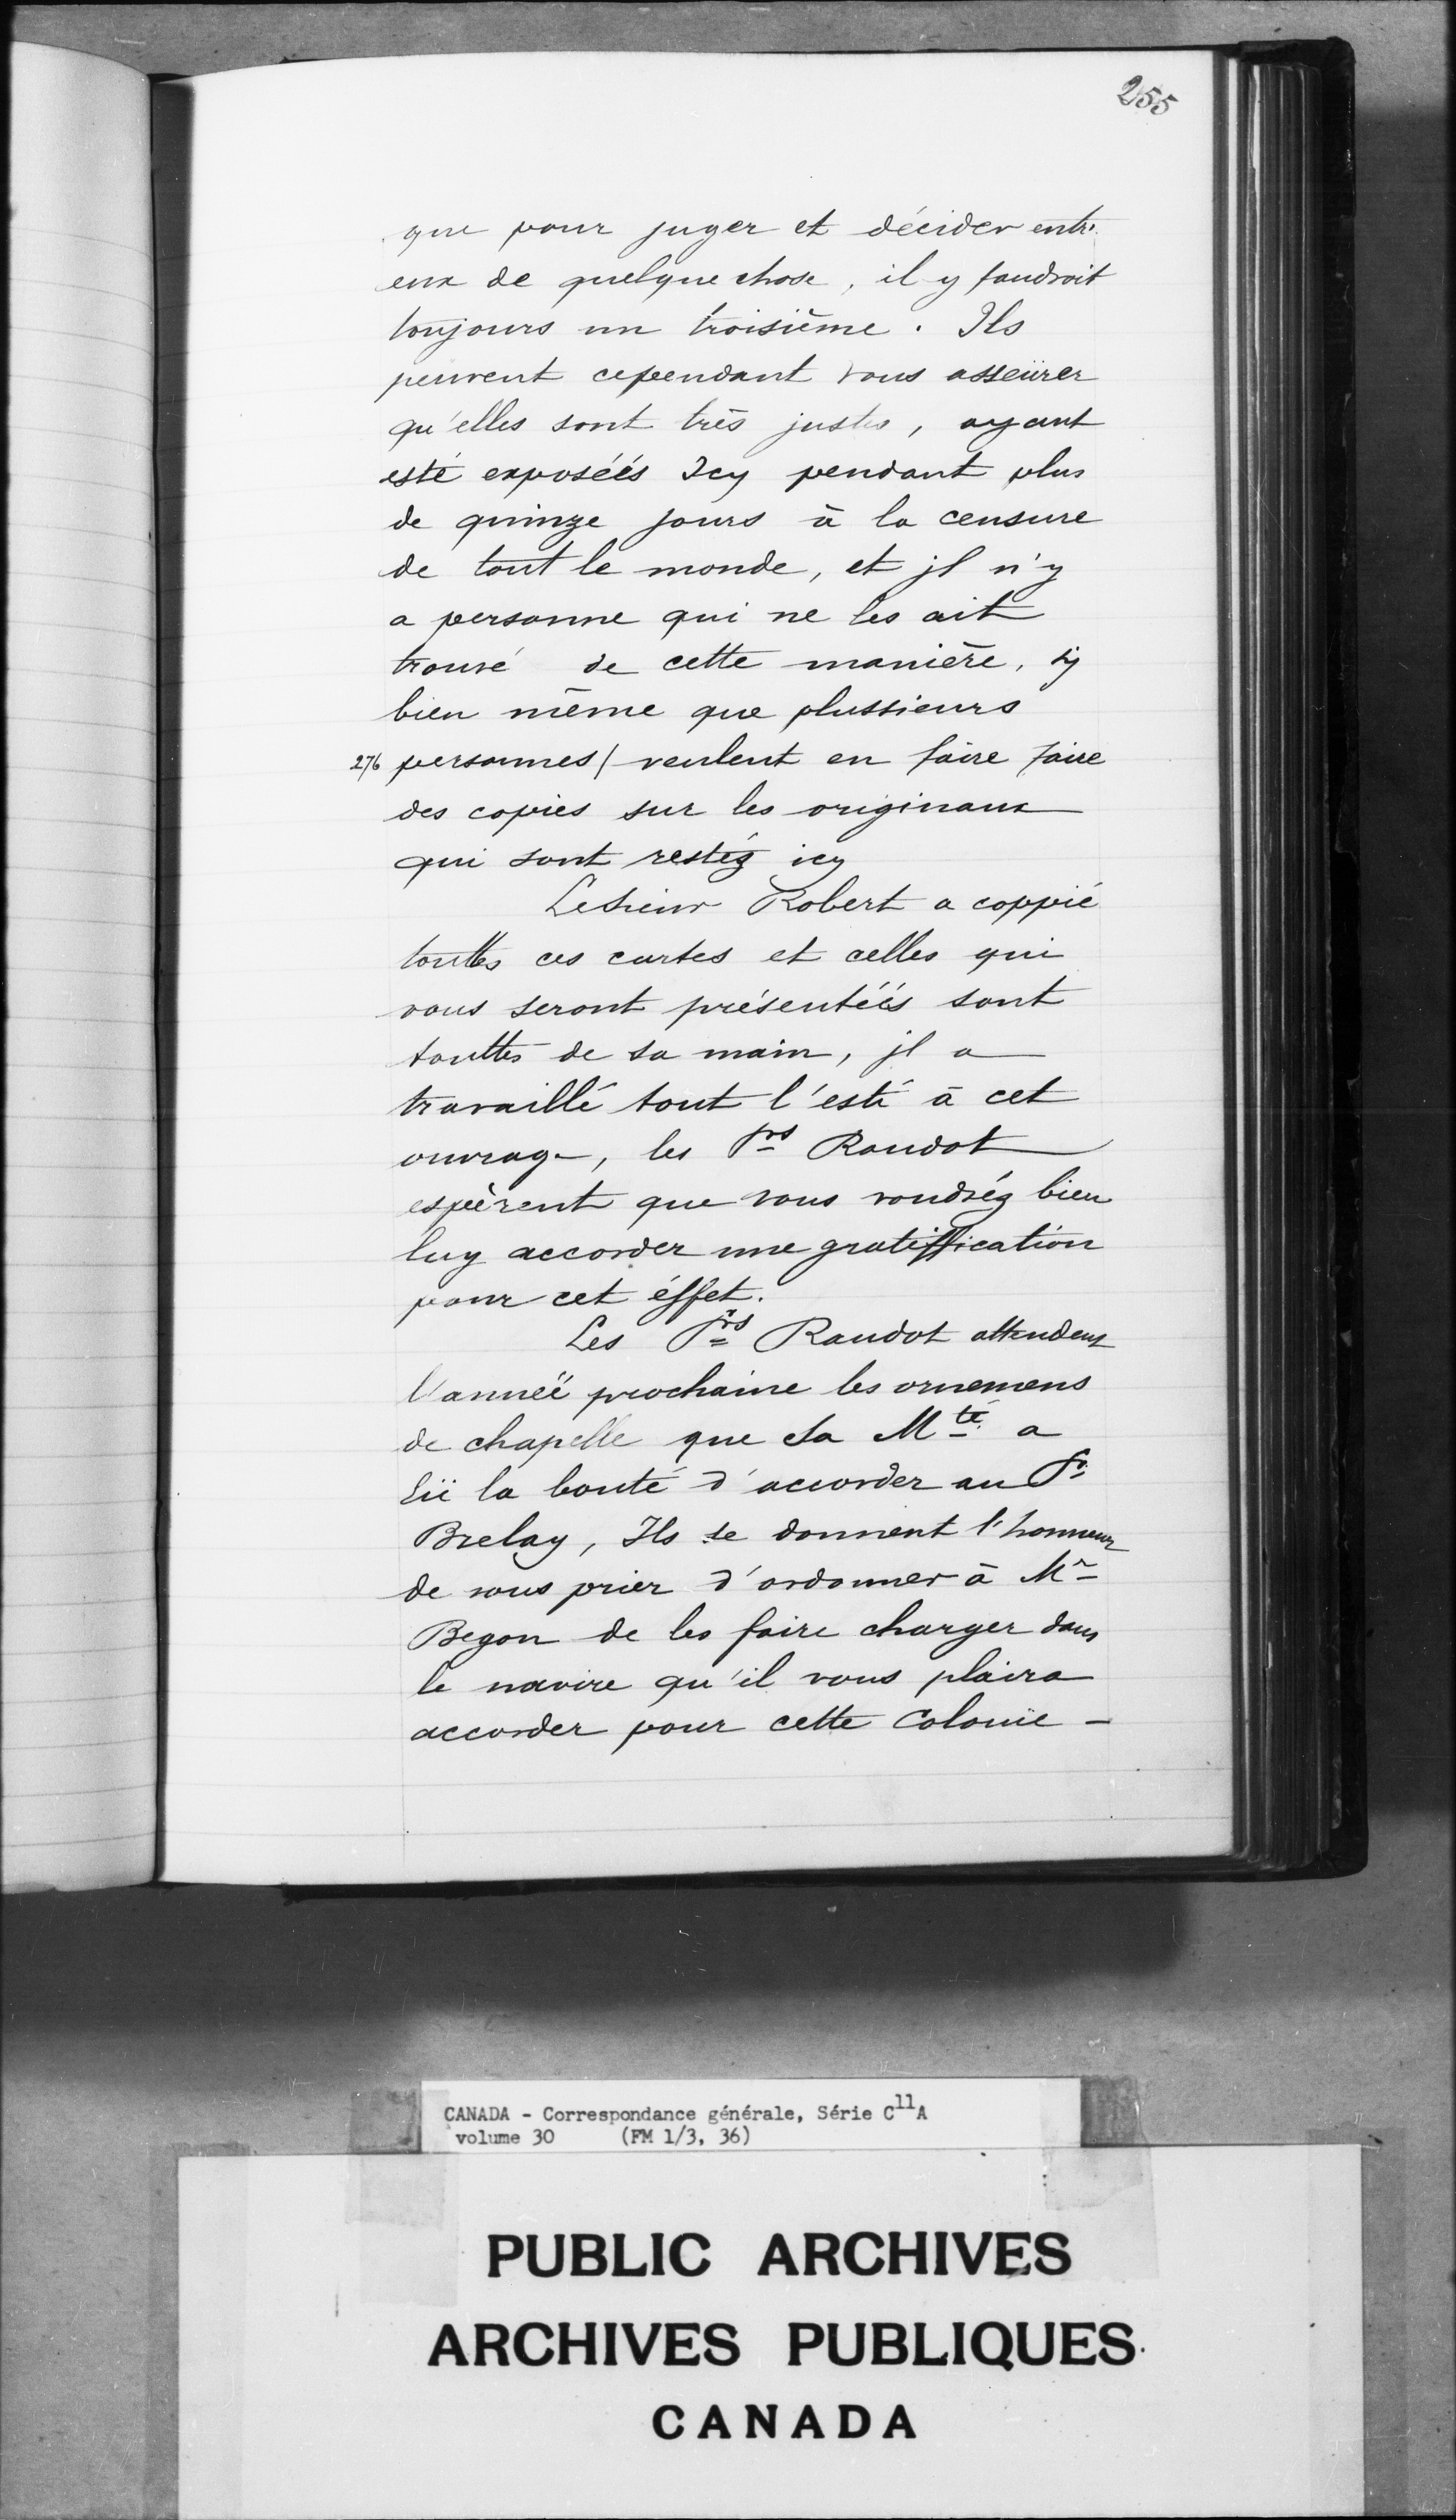 255
que pour juger et décider entr'
eux de quelque chose, il y faudroit
toujours un troisième. Ils
peuvent cependant vous asseürer
qu'elles sont très justes, ayant
esté exposéés Icy pendant plus
de quinze jours à la censure
de tout le monde, et jl n'y
a personne qui ne les ait
trouvé de cette manière, sy
bien même que plussieurs
276 personnes/ veulent en faire faire
des copies sur les originaux
qui sont restéz icy
Le sieur Robert a coppié
touttes ces cartes et celles qui
vous seront présentéés sont
touttes de sa main, jl a
travaillé tout l'esté à cet
ouvrage, les Srs Raudot
espèrent que vous voudréz bien
luy accorder une gratiffication
pour cet éffet.
Les Srs Raudot attendent
l'annéé prochaine les ornemens
de chapelle que Sa Mté a
Eü la bonté d'accorder au Sr
Brelay, Ils se donnent l'honneur
de vous prier d'ordonner à Mr
Begon de les faire charger dans
le navire qu'il vous plaira
accorder pour cette Colonie -
CANADA - Correspondance générale, Série C11A
volume 30 (FM 1/3, 36)
PUBLIC ARCHIVES
ARCHIVES PUBLIQUES
CANADA